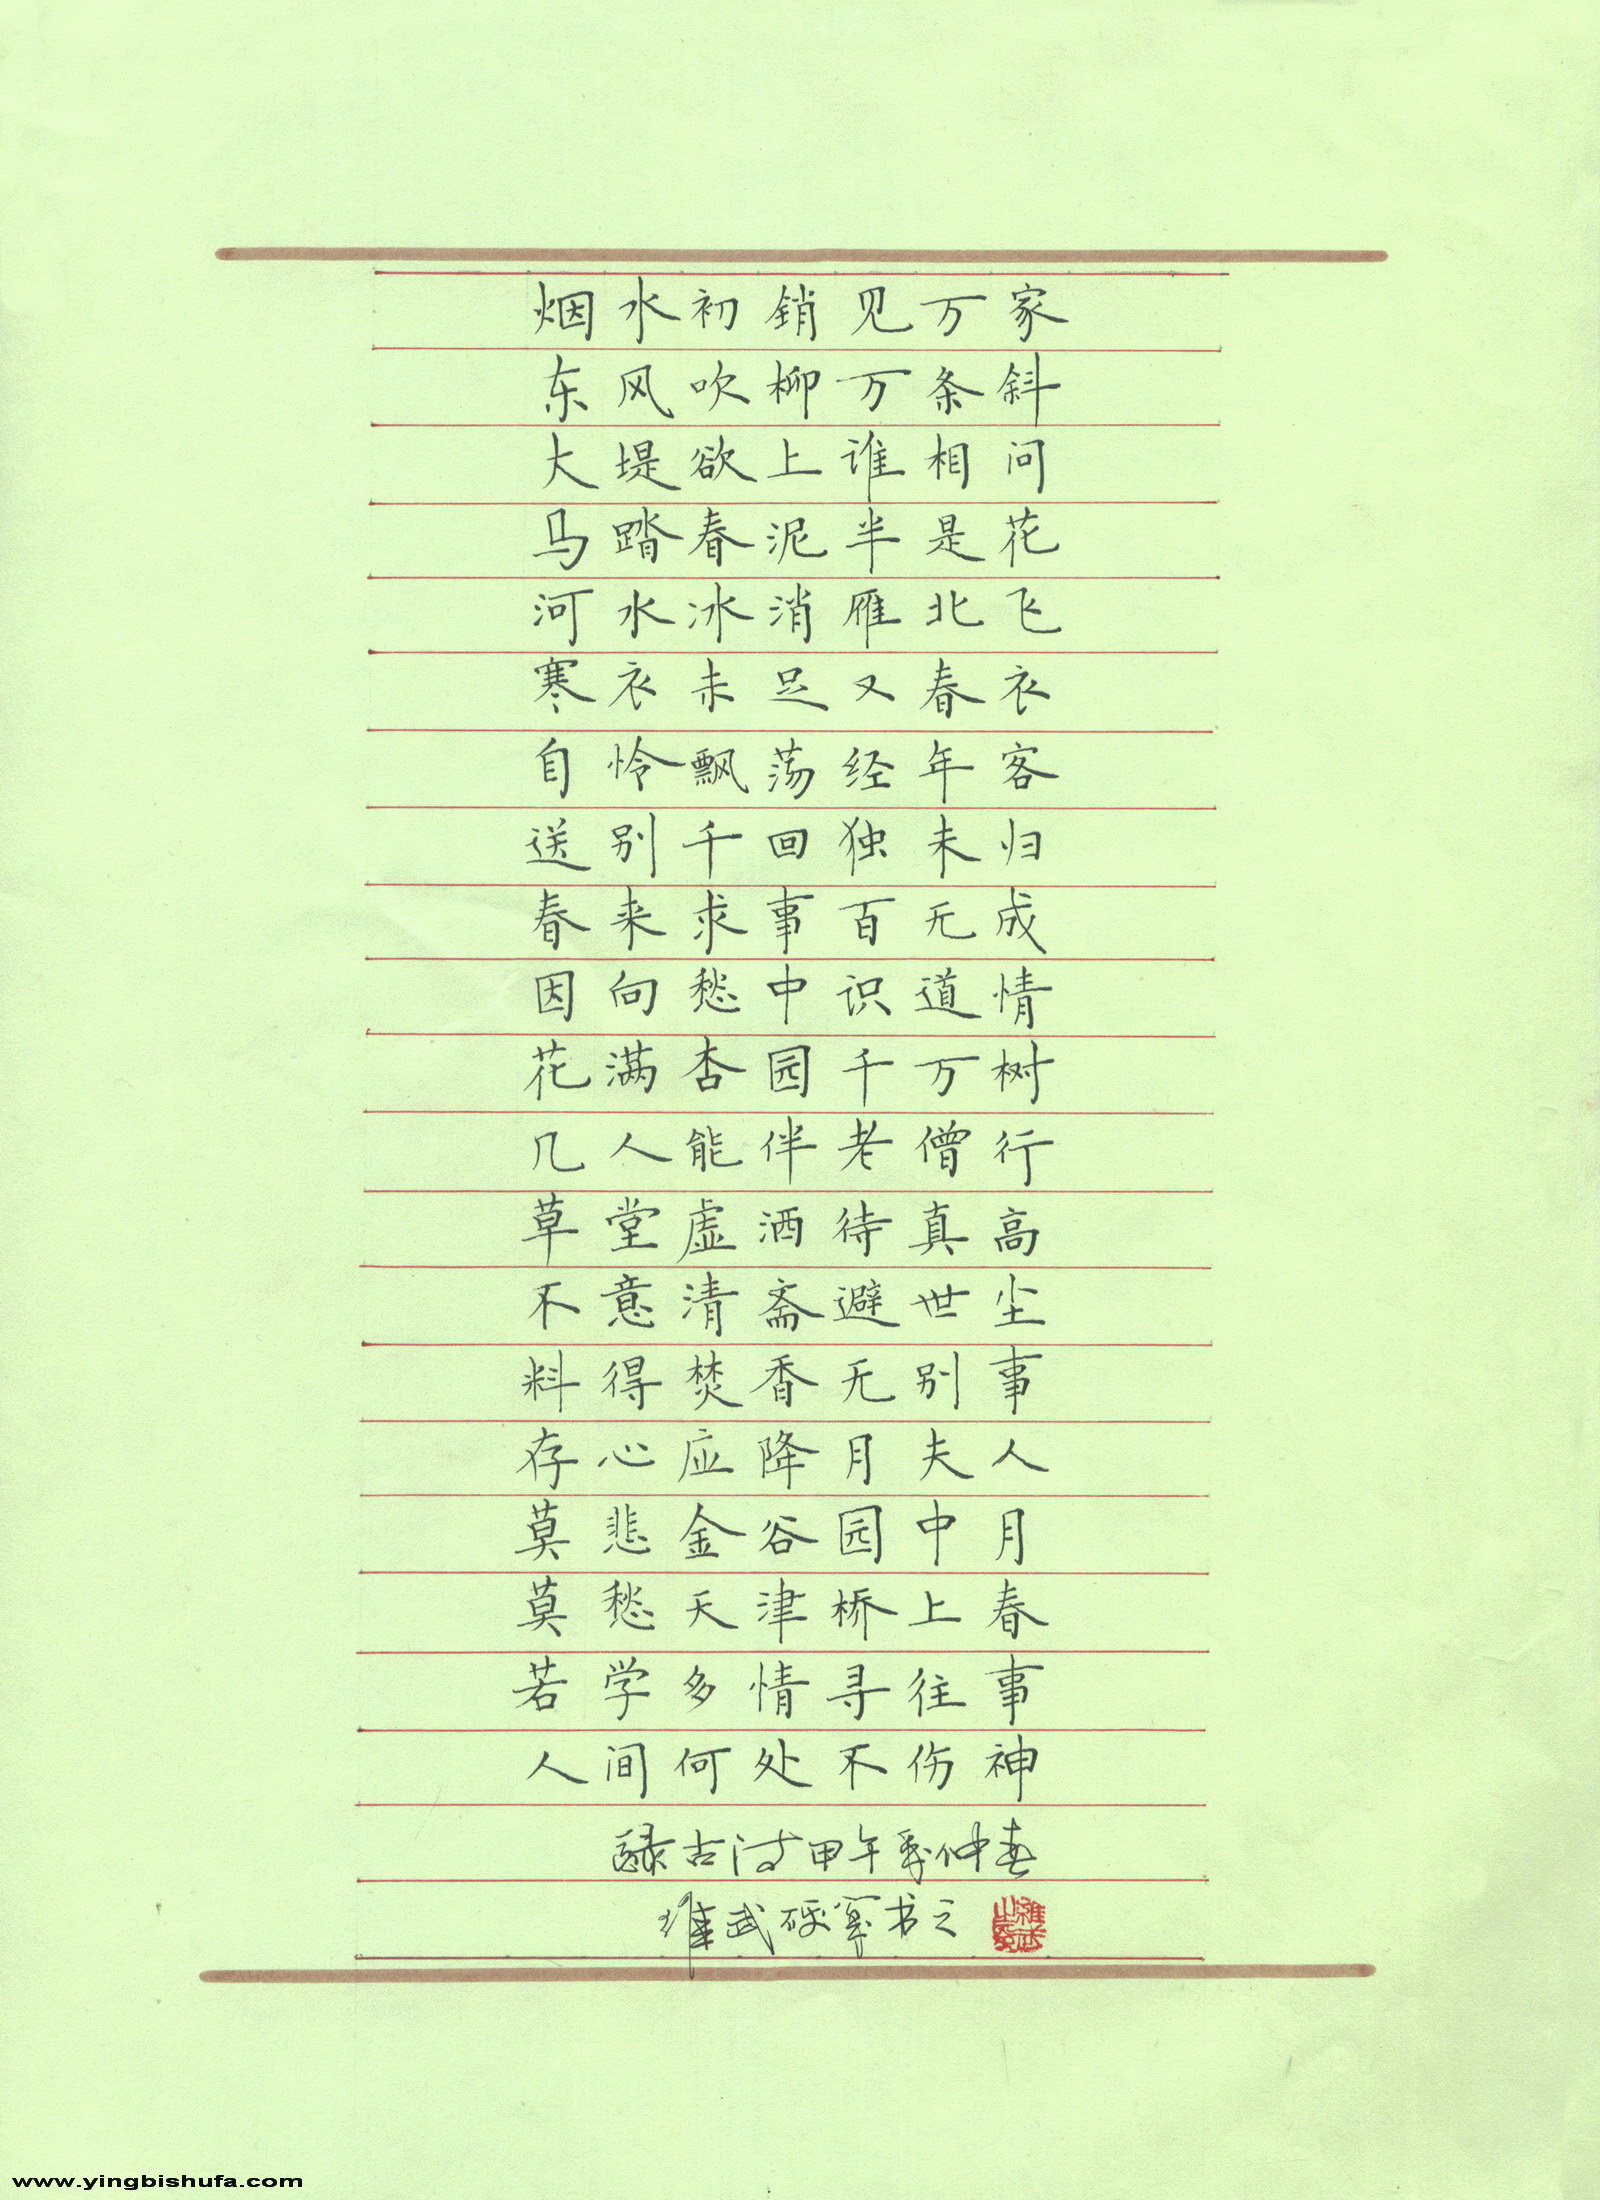 烟水初销见万家
东风吹柳万条斜
大堤欲上谁相问
马踏春泥半是花
河水冰消雁北飞
寒衣未足又春衣
自怜飘荡经年客
送别千回独未归
春来求事百无成
因向愁中识道情
花满杏园千万树
几人能伴老僧行
草堂虚洒待真高
不意清斋避世尘
料得焚香无别事
存心应降月夫人
莫悲金谷园中月
莫愁天津桥上春
若学多情寻往事
人间何处不伤神
录古诗甲午季仲春
维武硬笔书之
www.yingbishufa.com